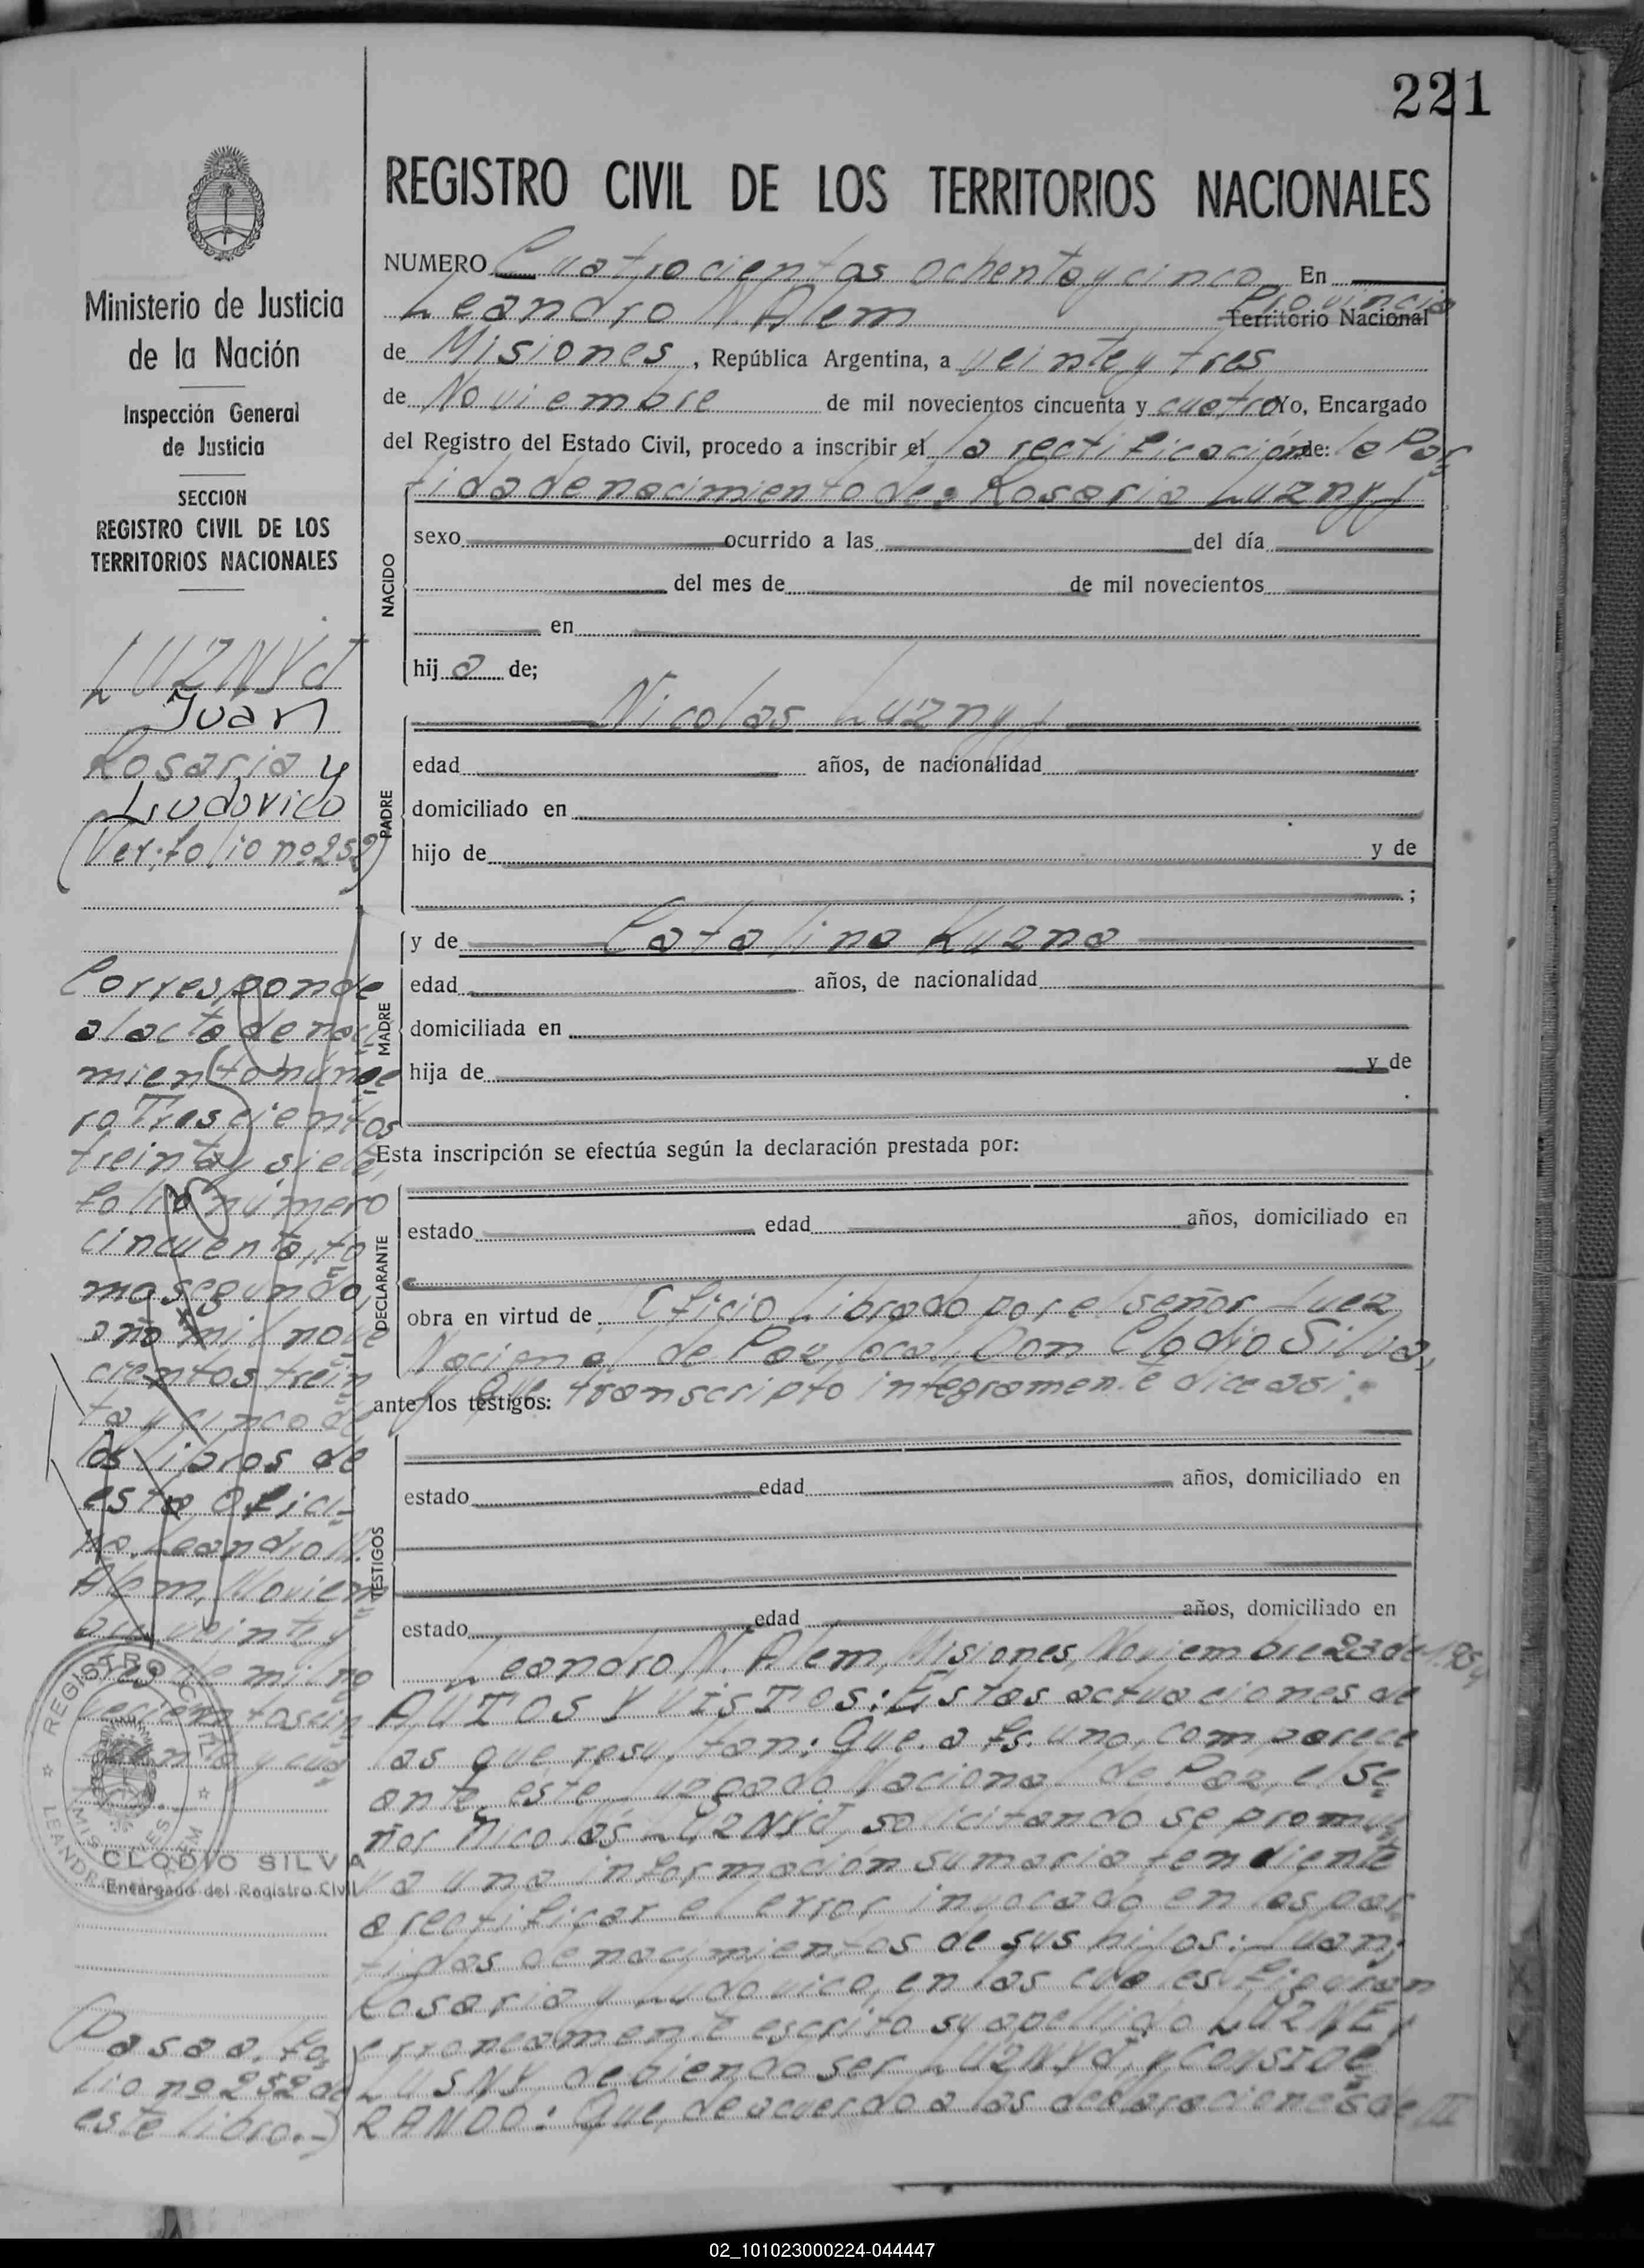 221
REGISTRO CIVIL DE LOS TERRITORIOS NACIONALES
Ministerio de Justicia
de la Nación
Inspección General
de Justicia
SECCION
REGISTRO CIVIL DE LOS
TERRITORIOS NACIONALES
LUZNYJ
Juan
Rosaria y
Ludovico
(Ver folio nº 252)
Corresponde
al acta de naci
miento núme
ro Trescientos
treinta y siete,
folio número
cincuenta, to
mo segundo,
año mil nove
cientos trein
ta y cinco de
los libros de
esta Ofici-
na. Leandro N.
Alem, Noviem
bre veinte y
tres de mil no
vecientos cin
cuenta y cua
REGISTRO CIVIL
LEANDRO N. ALEM
MISIONES
CLODIO SILVA
Encargado del Registro Civil
Pasa a fo
lio nº 252 de
este libro.-)
NUMERO Cuatrocientos ochenta y cinco En
Leandro N. Alem Provincia
Territorio Nacional
de Misiones, República Argentina, a veinte y tres
de Noviembre de mil novecientos cincuenta y cuatro Yo, Encargado
del Registro del Estado Civil, procedo a inscribir el la rectificación de: la Par
tida de nacimiento de: Rosaria Luznyj
NACIDO
sexo ocurrido a las del día
del mes de de mil novecientos
en
hij a de;
PADRE
Nicolas Luznyj
edad años, de nacionalidad
domiciliado en
hijo de y de
;
MADRE
y de Catalina Kuzna
edad años, de nacionalidad
domiciliada en
hija de y de
Esta inscripción se efectúa según la declaración prestada por:
DECLARANTE
estado edad años, domiciliado en
obra en virtud de Oficio librado por el señor Juez
Nacional de Paz local, Don Clodio Silva,
ante los testigos: y que transcripto integramente dice asi:
TESTIGOS
estado edad años, domiciliado en
estado edad años, domiciliado en
Leandro N. Alem, Misiones, Noviembre 23 de 1954
AUTOS Y VISTOS: Estas actuaciones de
las que resultan: Que a fs. uno, comparece
ante éste Juzgado Nacional de Paz, el se
ñor Nicolás LUZNYJ, solicitando se promue
va una información sumaria tendiente
a rectificar el error invocado en las par
tidas de nacimientos de sus hijos: Juan;
Rosaria y Ludovico, en las cuales figuran
erroneamente escrito su apellido LUZNE,
LUSNY, debiendo ser LUZNYJ, y CONSIDE
RANDO: Que, de acuerdo a las declaraciones de ///
02_101023000224-044447